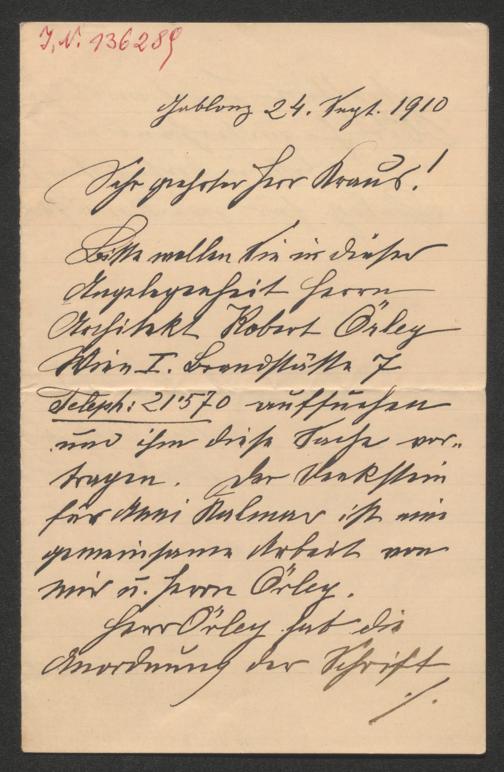 I.N. 136289
Gablonz 24. Sept. 1910
Sehr geehrter Herr Kraus!
Bitte wollen Sie in dieser
Angelegenheit Herrn
Architekt Robert Örley
Wien I. Brandstätte 7
Teleph: 21570 aufsuchen
und ihm diese Sache vor-
tragen. Der Denkstein
für Anni Kalmar ist eine
gemeinsame Arbeit von
mir u. Herrn Örley.
Herr Örley hat die
Anordnung der Schrift
./.